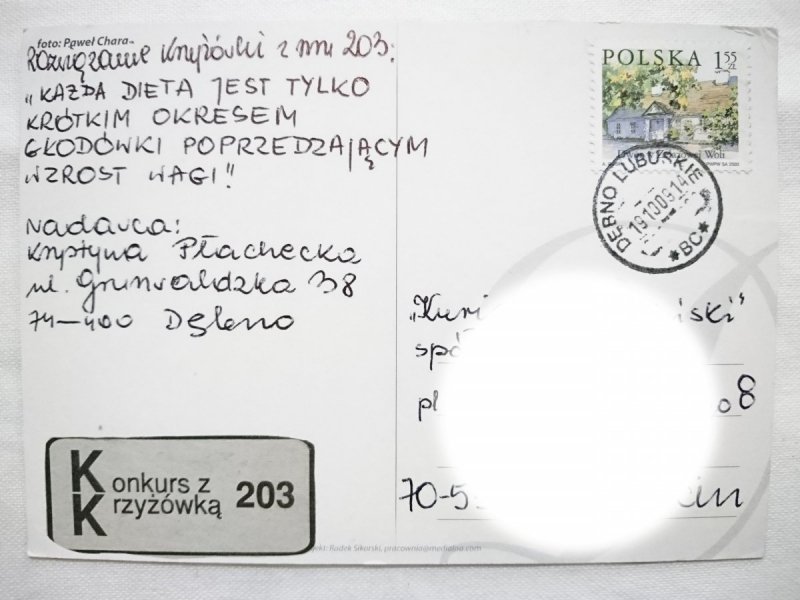 foto: Paweł Chara
Rozwiązanie Krzyżówki z nru 203:
"KAŻDA DIETA JEST TYLKO
KRÓTKIM OKRESEM
GŁODÓWKI POPRZEDZAJĄCYM
WZROST WAGI!"
Nadawca:
Krystyna Płachecka
ul. Grunwaldzka 38
74-400 Dębno
Konkurs z
Krzyżówką 203
POLSKA 1,55
ZŁ
Woli
DĘBNO LUBUSKIE
191009.14
*BC*
"Kuri ski"
spó
pl o 8
70-5 cin
Radek Sikorski, pracownia@medialna.com